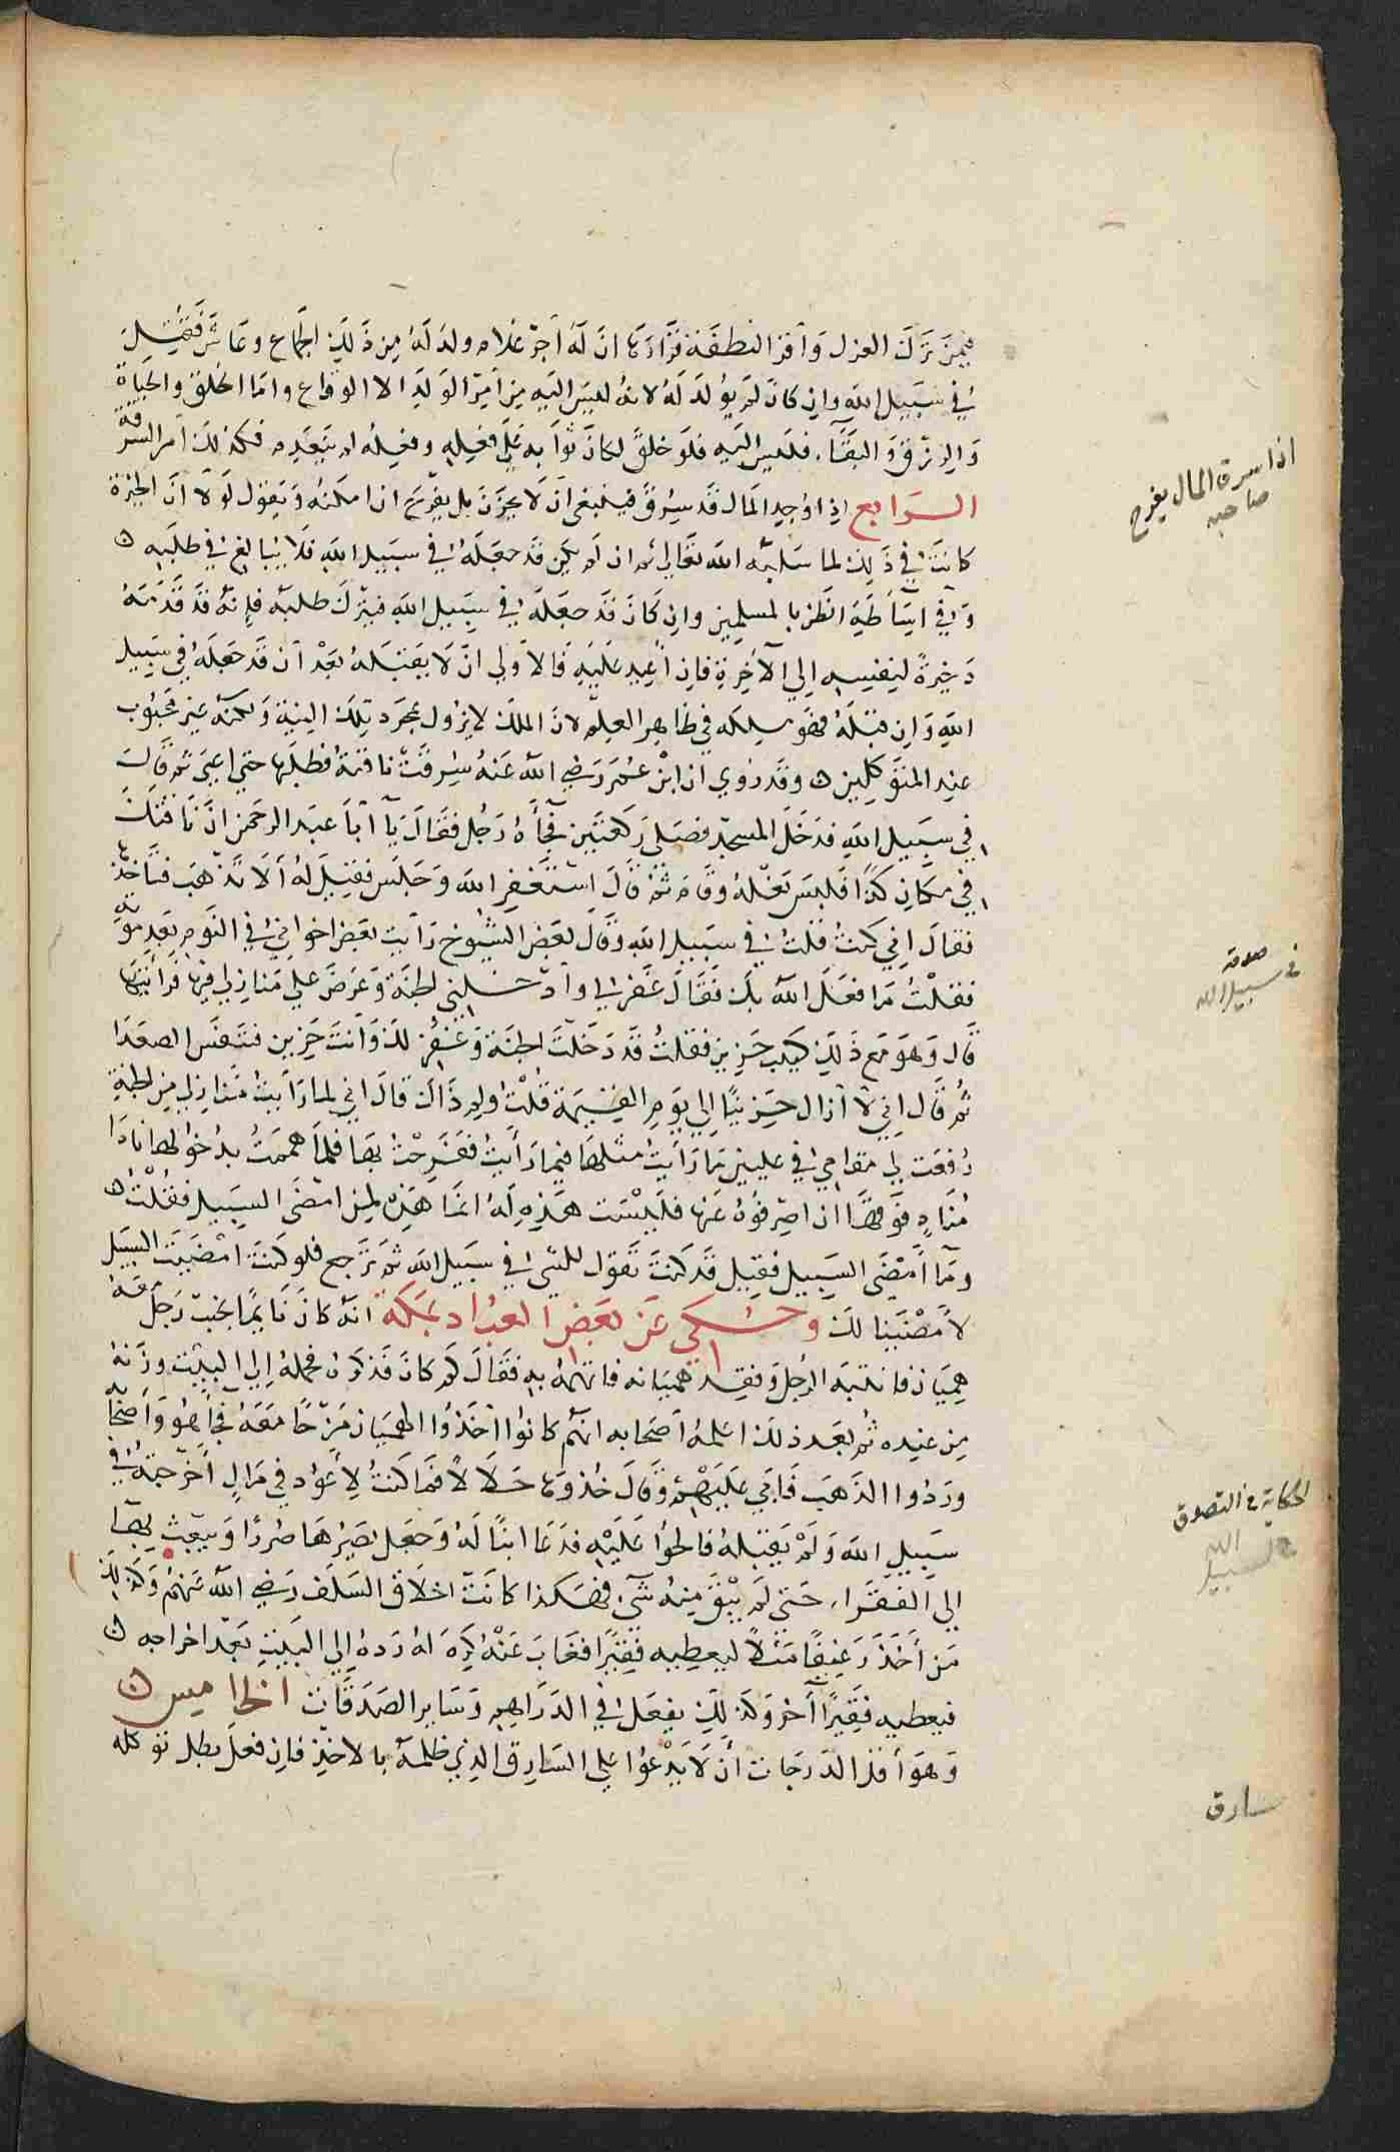 فيمن ترك العزل واقر النطفة قرارها ان له اجر غلام ولد له من ذلك الجماع وعاش فقتل
في سبيل الله وان كان لم يولد له لانه ليس اليه من امر الولد الا الوقاع واما الخلق والحياة
والرزق والبقاء فليس اليه فلو خلق لكان ثوابه على فعله وفعله لم ينعدم فكذلك امر السرقة
الرابع اذا وجد المال قد سرق فينبغي ان لا يحزن بل يفرح ان امكنه ويقول لولا ان الخيرة
كانت في ذلك لما سلبه الله تعالى ثم ان لم يكن قد جعله في سبيل الله فلا يبالغ في طلبه
وفي اساءة الظن بالمسلمين وان كان قد جعله في سبيل الله فيترك طلبه فانه قد قدمه
ذخيرة لنفسه الي الآخرة فان اعيد عليه فالاولي ان لا يقبله بعد ان قد جعله في سبيل
الله وان قبله فهو ملكه في ظاهر العلم لان الملك لا يزول بمجرد تلك النية ولكنه غير محبوب
عند المتوكلين وقد روي ان ابن عمر رضي الله عنه سرقت ناقته فطلبها حتي اعيي ثم قال
في سبيل الله فدخل المسجد فصلى ركعتين فجاءه رجل فقال يا ابا عبد الرحمن ان ناقتك
في مكان كذا فلبس نعله وقام ثم قال استغفر الله وجلس فقيل له الا تذهب فتاخذها
فقال اني كنت قلت في سبيل الله وقال بعض الشيوخ رايت بعض اخواني في النوم بعد موته
فقلت ما فعل الله بك فقال غفر لي وادخلني الجنة وعرض علي منازلي فيها فرايتها
قال وهو مع ذلك كئيب حزين فقلت قد دخلت الجنة وغفر لك وانت حزين فتنفس الصعدا
ثم قال اني لا ازال حزينا الي يوم القيمة قلت ولم ذاك قال اني لما رايت منازلي من الجنة
رفعت لي مقامي في عليين ما رايت مثلها فيما رايت ففرحت بها فلما هممت بدخولها نادا
مناد فوقها ان اصرفوه عنها فليست هذه له انما هذه لمن امضى السبيل فقلت
وما امضى السبيل فقيل قد كنت تقول للشئ في سبيل الله ثم ترجع فلو كنت امضيت السبيل
لامضينا لك وحكي عن بعض العباد بمكة انه كان نايما بجنب رجل معه
هميان فانتبه الرجل وفقد هميانه فاتهمه به فقال كم كان فذكر له فحمله الي البيت وزنه
من عنده ثم بعد ذلك اعلمه اصحابه انهم كانوا اخذوا الهميان مزحا معه فجاء هو واصحابه
وردوا الذهب فابي عليهم وقال خذوها حلالا فما كنت لاعود في مال اخرجته في
سبيل الله ولم يقبله فالحوا عليه فدعا ابنا له وجعل يصرها صررا ويبعث بها
الي الفقراء حتى لم يبق منه شئ فهكذا كانت اخلاق السلف رضي الله عنهم وكذلك
من اخذ رغيفا مثلا ليعطيه فقيرا فغاب عنه كره له رده الي البيت بعد اخراجه
فيعطيه فقيرا آخر وكذلك يفعل في الدراهم وساير الصدقات الخامس
وهو اقل الدرجات ان لا يدعوا على السارق الذي ظلمه بالاخذ فان فعل بطل توكله
اذا سرق المال يفرح
صاحبه
صدقة
في سبيل الله
الحكاية في التصدق
سارق